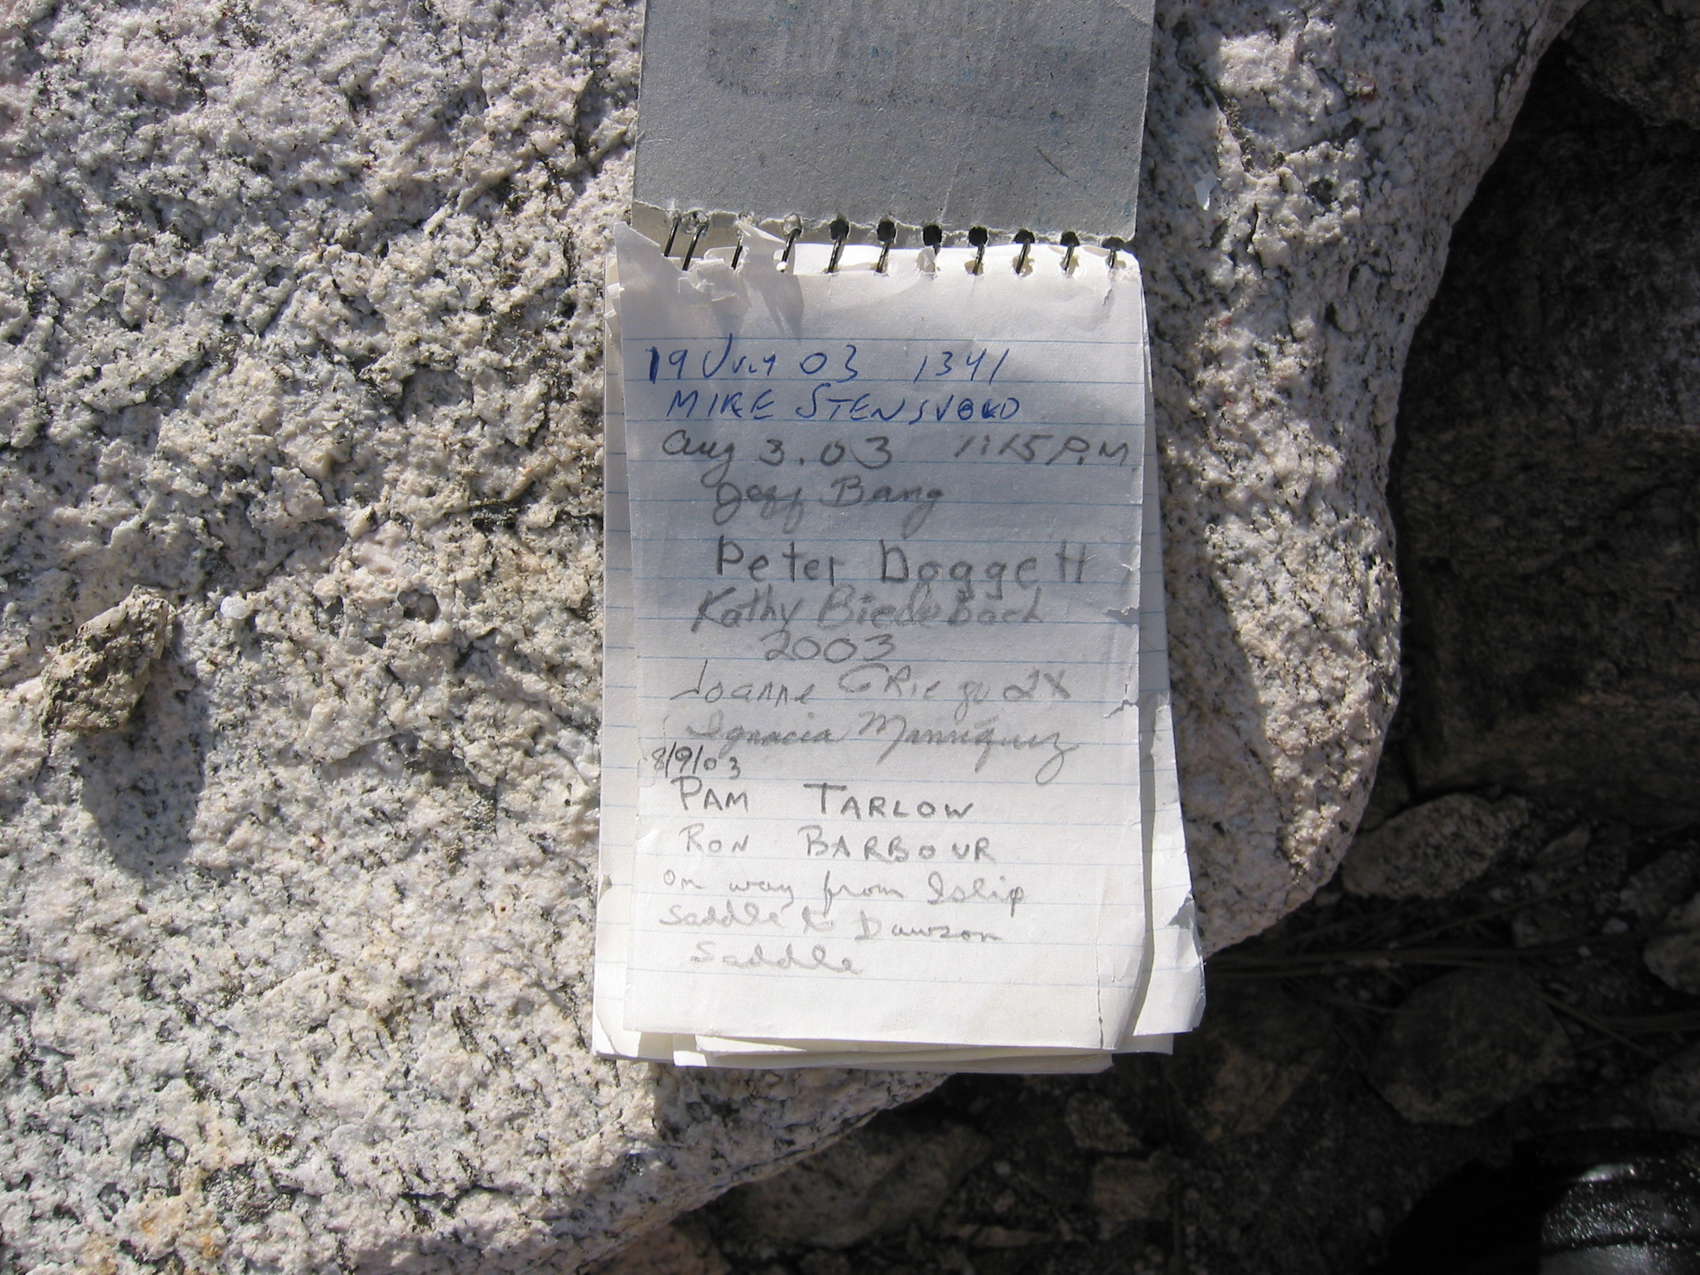 19 July 03 1341
MIKE STENSVOLD
Aug 3. 03 1:15 P.M.
Jeff Bang
Peter Doggett
Kathy Biedebach
2003
Joanne Griego 2X
Ignacia Manriquez
8/9/03
PAM TARLOW
RON BARBOUR
on way from Islip
Saddle to Dawson
Saddle